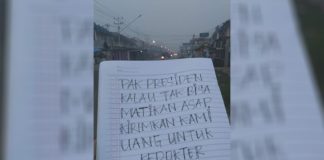 PAK PRESIDEN
KALAU TAK BISA
MATIKAN ASAP
KIRIMKAN KAMI
UANG UNTUK
KEDOKTER